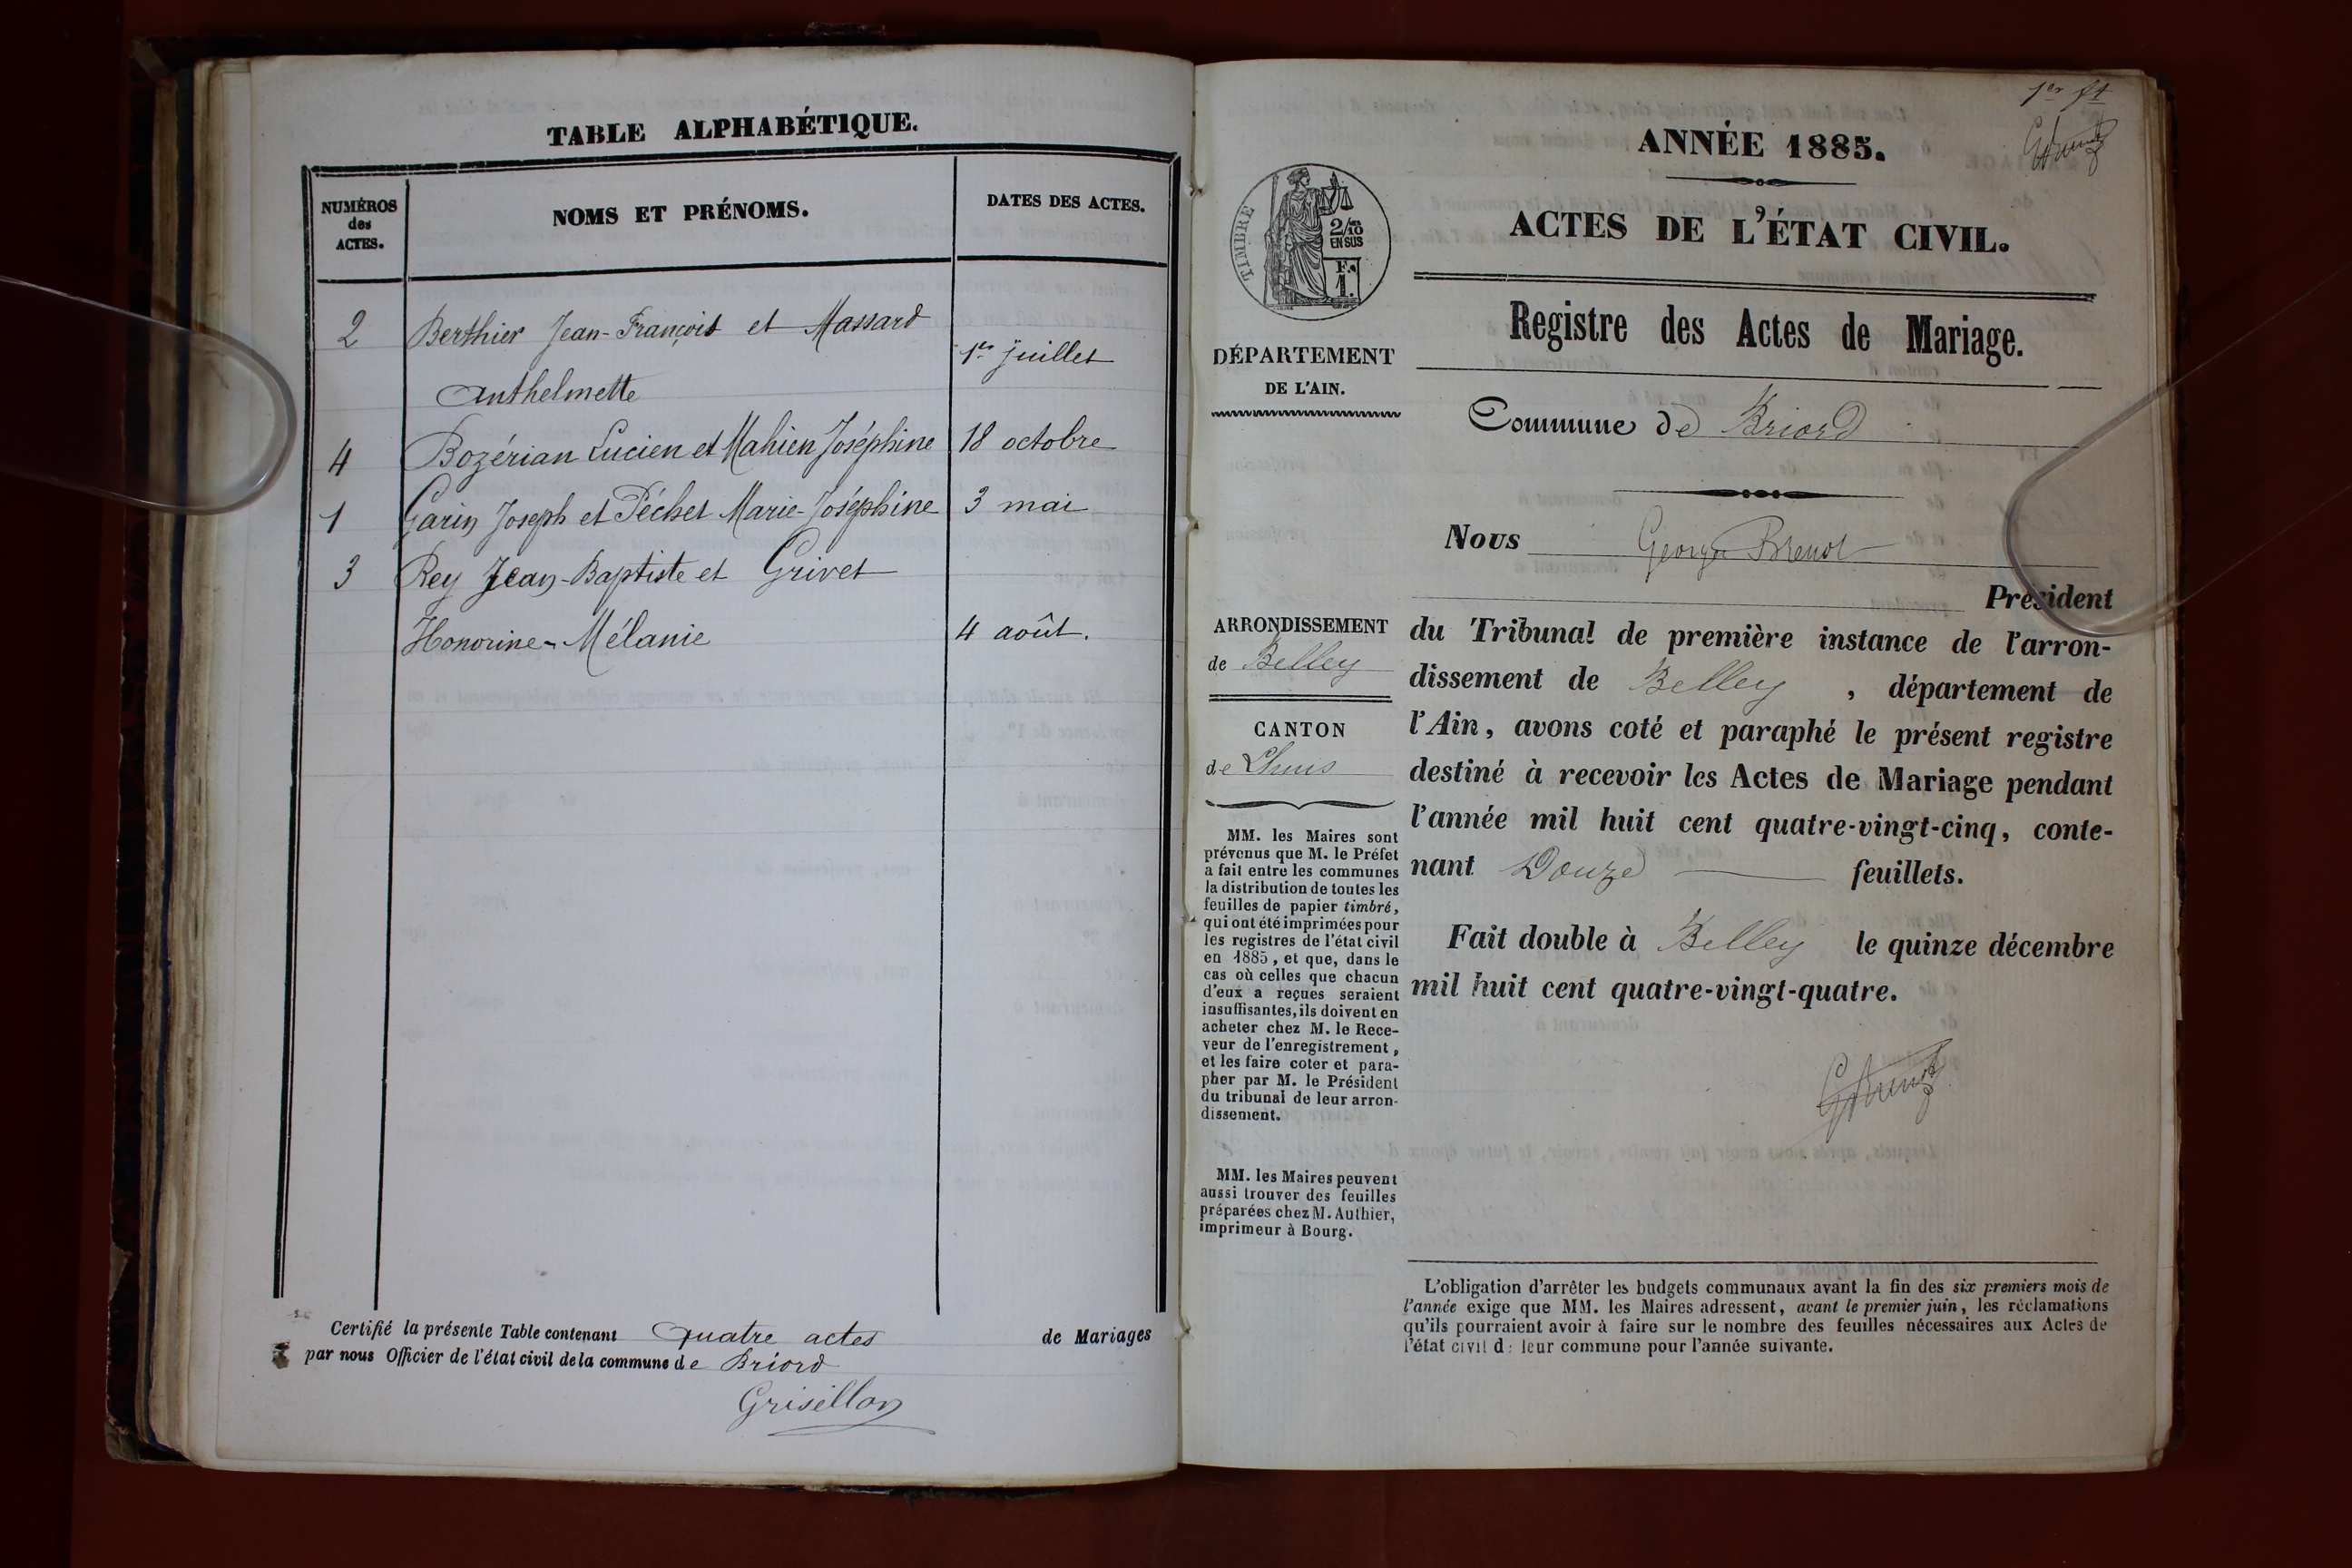 TABLE ALPHABÉTIQUE.
NUMÉROS
des
ACTES.
NOMS ET PRÉNOMS.
DATES DES ACTES.
2 Berthier Jean-François et Massard
1er juillet
Anthelmette
4 Bozérian Lucien et Mahien Joséphine 18 octobre
1 Garin Joseph et Péchet Marie-Joséphine 3 mai
3 Rey Jean-Baptiste et Grivet
Honorine-Mélanie 4 août.
Certifié la présente Table contenant quatre actes de Mariages
par nous Officier de l'état civil de la commune de Briord
Grisillon
1er ft
TIMBRE
2/10
EN SUS
F.
1.
DÉPARTEMENT
DE L'AIN.
ARRONDISSEMENT
de Belley
CANTON
de Lhuis
MM. les Maires sont
prévenus que M. le Préfet
a fait entre les communes
la distribution de toutes les
feuilles de papier timbré,
qui ont été imprimées pour
les registres de l'état civil
en 1885, et que, dans le
cas où celles que chacun
d'eux a reçues seraient
insuffisantes, ils doivent en
acheter chez M. le Rece-
veur de l'enregistrement,
et les faire coter et para-
pher par M. le Président
du tribunal de leur arron-
dissement.
MM. les Maires peuvent
aussi trouver des feuilles
préparées chez M. Authier,
imprimeur à Bourg.
ANNÉE 1885.
ACTES DE L'ÉTAT CIVIL.
Registre des Actes de Mariage.
Commune de Briord
Nous Georges Brenot
Président
du Tribunal de première instance de l'arron-
dissement de Belley, département de
l'Ain, avons coté et paraphé le présent registre
destiné à recevoir les Actes de Mariage pendant
l'année mil huit cent quatre-vingt-cinq, conte-
nant Douze feuillets.
Fait double à Belley le quinze décembre
mil huit cent quatre-vingt-quatre.
L'obligation d'arrêter les budgets communaux avant la fin des six premiers mois de
l'année exige que MM. les Maires adressent, avant le premier juin, les réclamations
qu'ils pourraient avoir à faire sur le nombre des feuilles nécessaires aux Actes de
l'état civil d: leur commune pour l'année suivante.